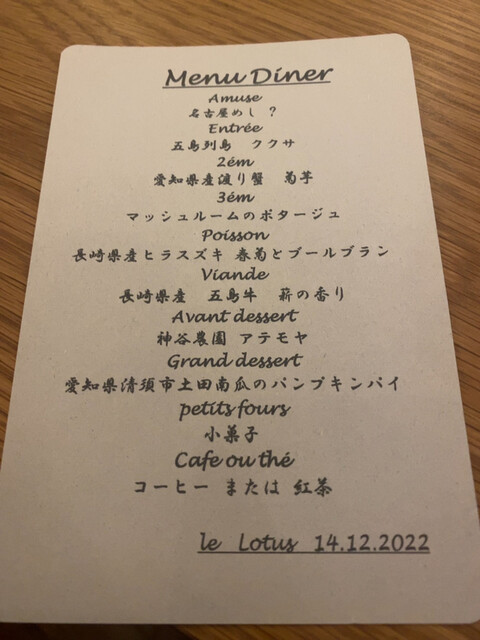 Menu Díner
Amuse
名古屋めし ？
Entrée
五島列島 ククサ
2ém
愛知県産渡り蟹 菊芋
3ém
マッシュルームのポタージュ
Poisson
長崎県産ヒラスズキ 春菊とブールブラン
Viande
長崎県産 五島牛 薪の香り
Avant dessert
神谷農園 アテモヤ
Grand dessert
愛知県清須市土田南瓜のパンプキンパイ
petits fours
小菓子
Cafe ou thé
コーヒー または 紅茶
le Lotus 14.12.2022